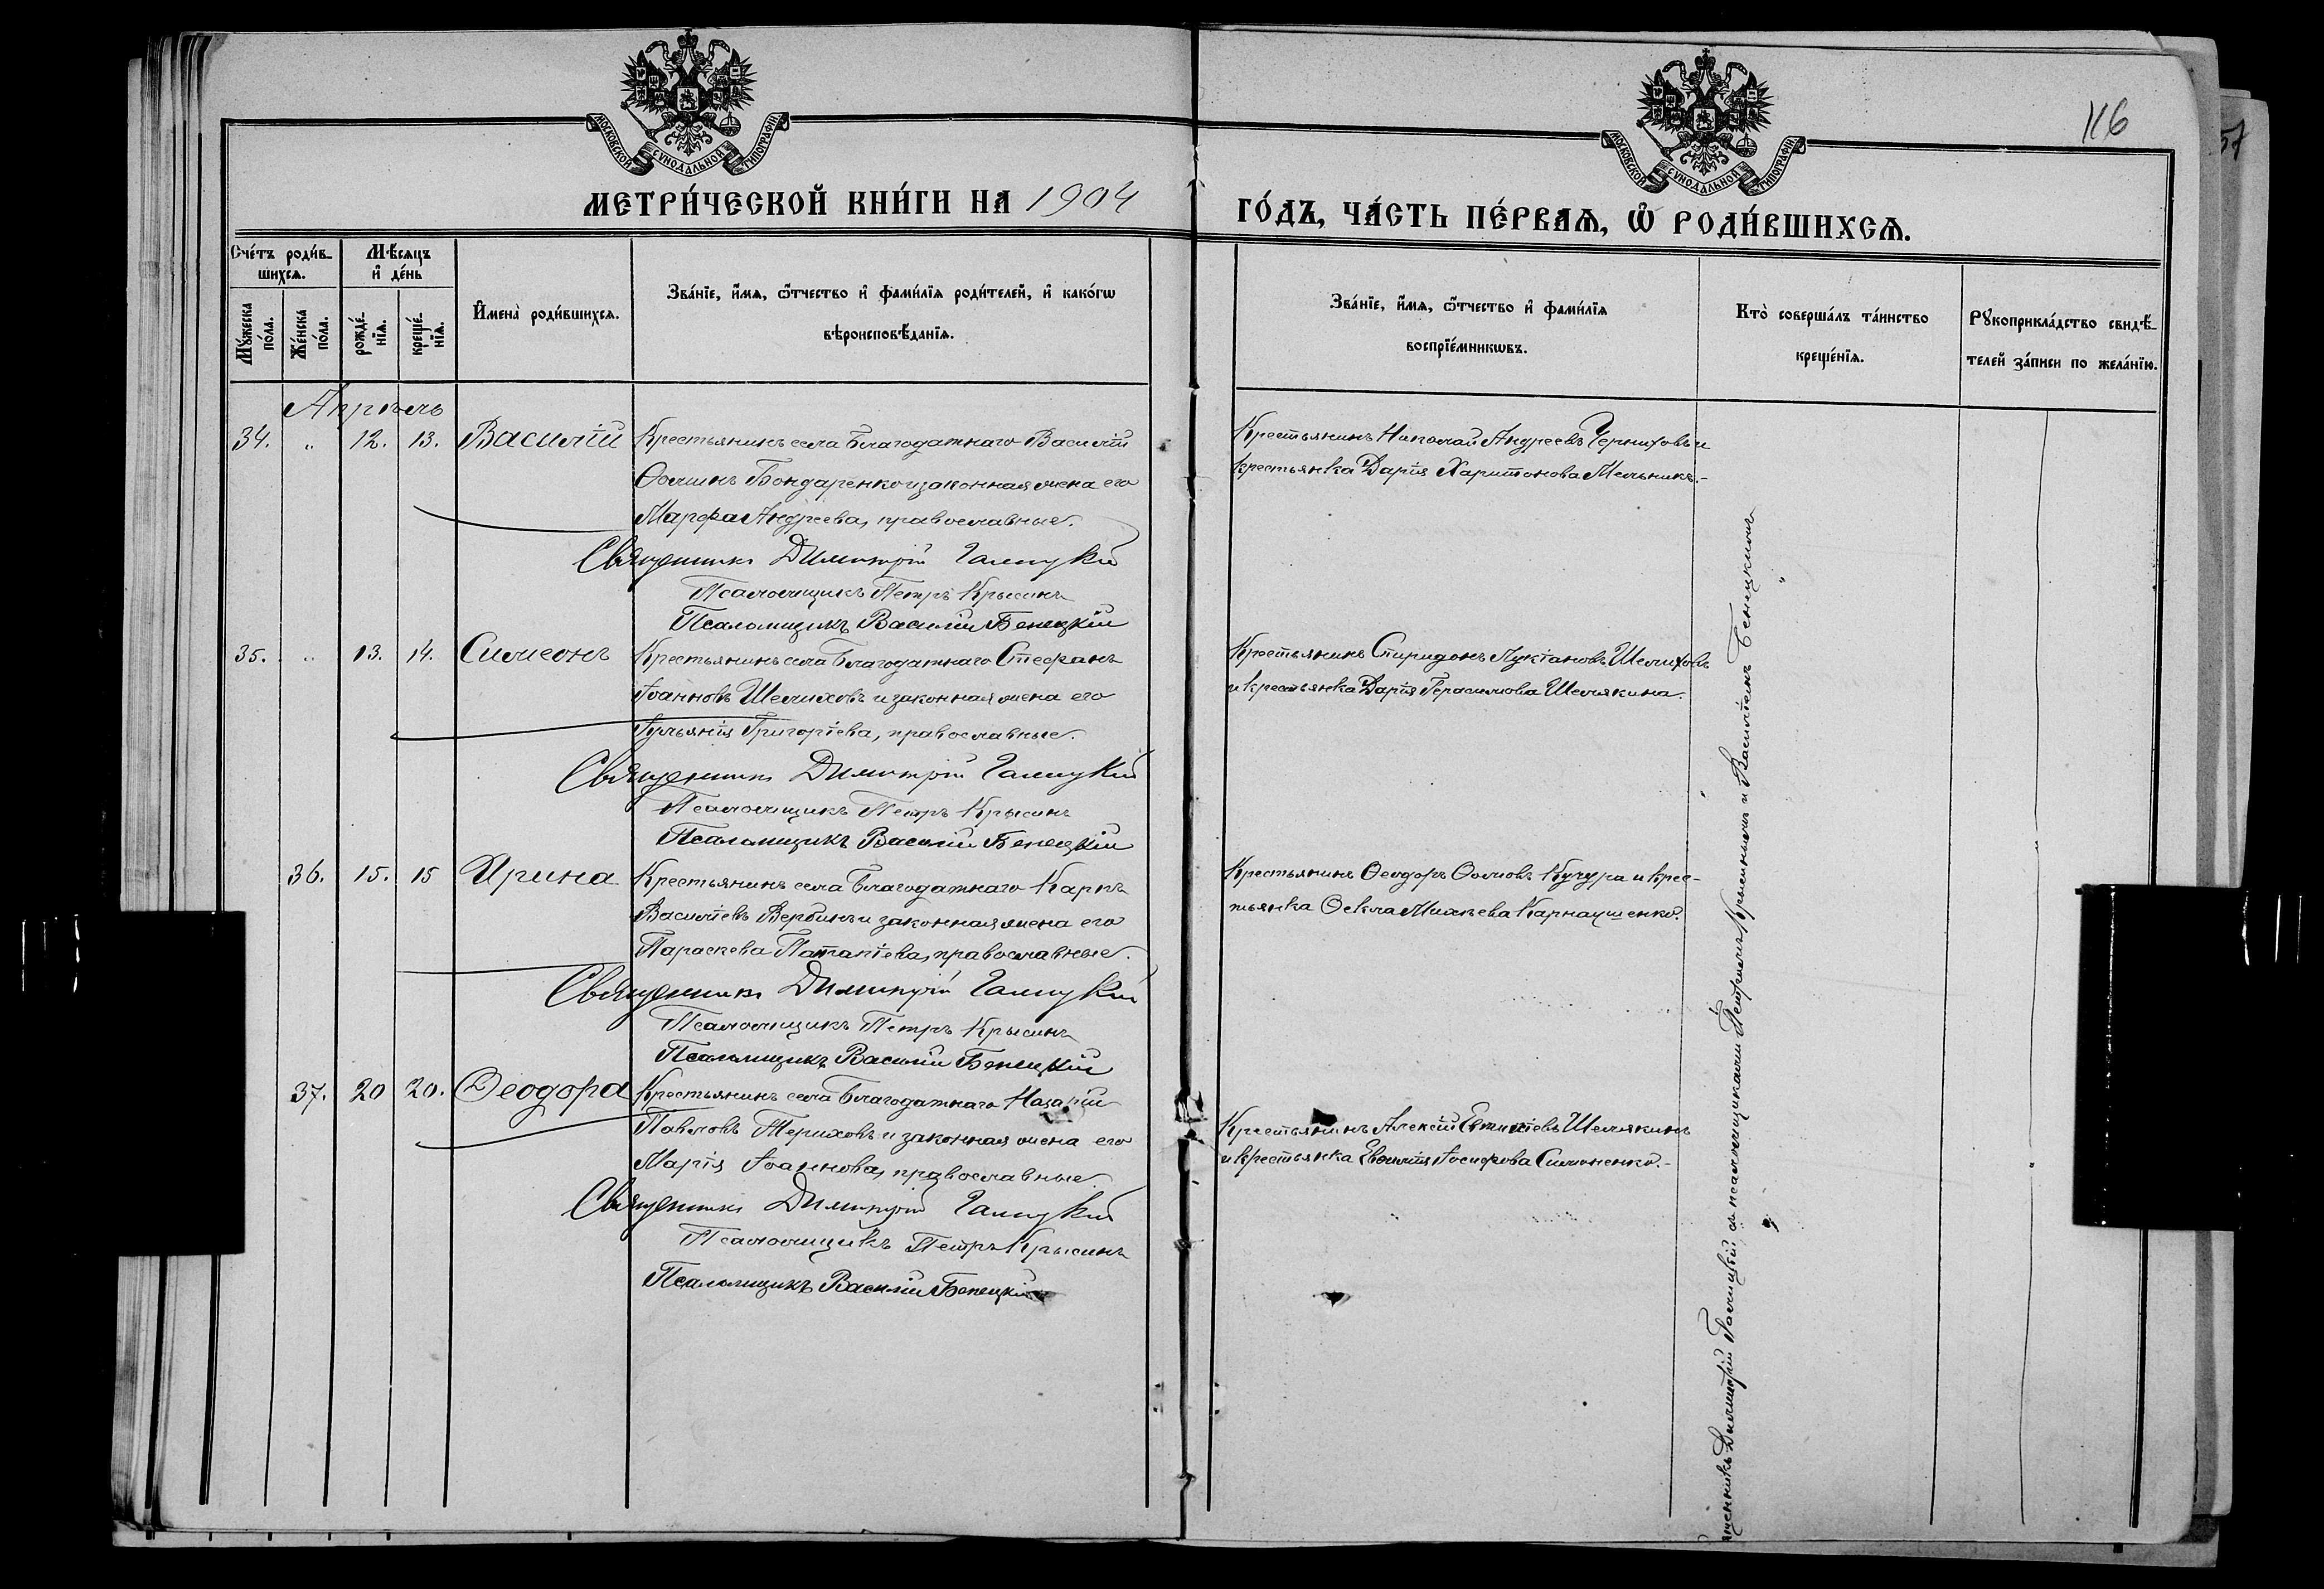 МОСКОВСКОЙ СѴНОДАЛЬНОЙ ТИПОГРАФІИ
МОСКОВСКОЙ СѴНОДАЛЬНОЙ ТИПОГРАФІИ
116
57
МЕТРИ́ЧЕСКОЙ КНИ́ГИ НА 1904
ГО́ДЪ, ЧА́СТЬ ПЕ́РВАѦ, Ѽ РОДИ́ВШИХСѦ.
Сче́тъ роди́в-
шихсѧ.
Мꙋ́жеска по́ла.
Же́нска по́ла.
Мѣ́сѧцъ
и҆ де́нь
рожде́-
нїѧ.
креще́-
нїѧ.
И҆мена̀ роди́вшихсѧ.
Зва́нїе, и҆́мѧ, ѻ҆́тчество и҆ фами́лїѧ роди́телей, и҆ како́гѡ
вѣроисповѣ́данїѧ.
Зва́нїе, и҆́мѧ, ѻ҆́тчество и҆ фами́лїѧ
воспрїе́мникѡвъ.
Кто̀ соверша́лъ та́инство
креще́нїѧ.
Рꙋкоприкла́дство свидѣ́-
телей за́писи по жела́нїю.
Апрѣль
34. „ 12. 13. Василій
Крестьянинъ села Благодатнаго Василій
Ѳоминъ Бондаренко и законная жена его
Марѳа Андреева, православные.
Священникъ Димитрій Галицкій
Псаломщикъ Петръ Крысинъ
Псаломщикъ Василій Бенецкій
Крестьянинъ Николай Андреевъ Черниховъ и
крестьянка Дарія Харитонова Мельникъ.-
35. „ 13. 14. Симеонъ
Крестьянинъ села Благодатнаго Стефанъ
Іоанновъ Шелиховъ и законная жена его
Іульянія Григоріева, православные.
Священникъ Димитрій Галицкій
Псаломщикъ Петръ Крысинъ
Псаломщикъ Василій Бенецкій
Крестьянинъ Спиридонъ Лукіановъ Шелиховъ
и крестьянка Дарія Герасимова Шелякина.
36. 15. 15 Ирина
Крестьянинъ села Благодатнаго Карпъ
Василіевъ Вербинъ и законная жена его
Параскева Патапіева, православные.
Священникъ Димитрій Галицкій
Псаломщикъ Петръ Крысинъ
Псаломщикъ Василій Бенецкій
Крестьянинъ Ѳеодоръ Ѳомовъ Кучура и крес-
тьянка Ѳекла Михѣева Карнаушенко.
37. 20 20. Ѳеодора
Крестьянинъ села Благодатнаго Назарій
Павловъ Териховъ и законная жена его
Марія Іоаннова, православные.
Священникъ Димитрій Галицкій
Псаломщикъ Петръ Крысинъ
Псаломщикъ Василій Бенецкій
Крестьянинъ Алексій Шелякинъ
и крестьянка Евфимія Іосифова Симоненко.-
Димитрій Галицкій съ псаломщиками Петромъ Крысинымъ и Василіемъ Бенецкимъ